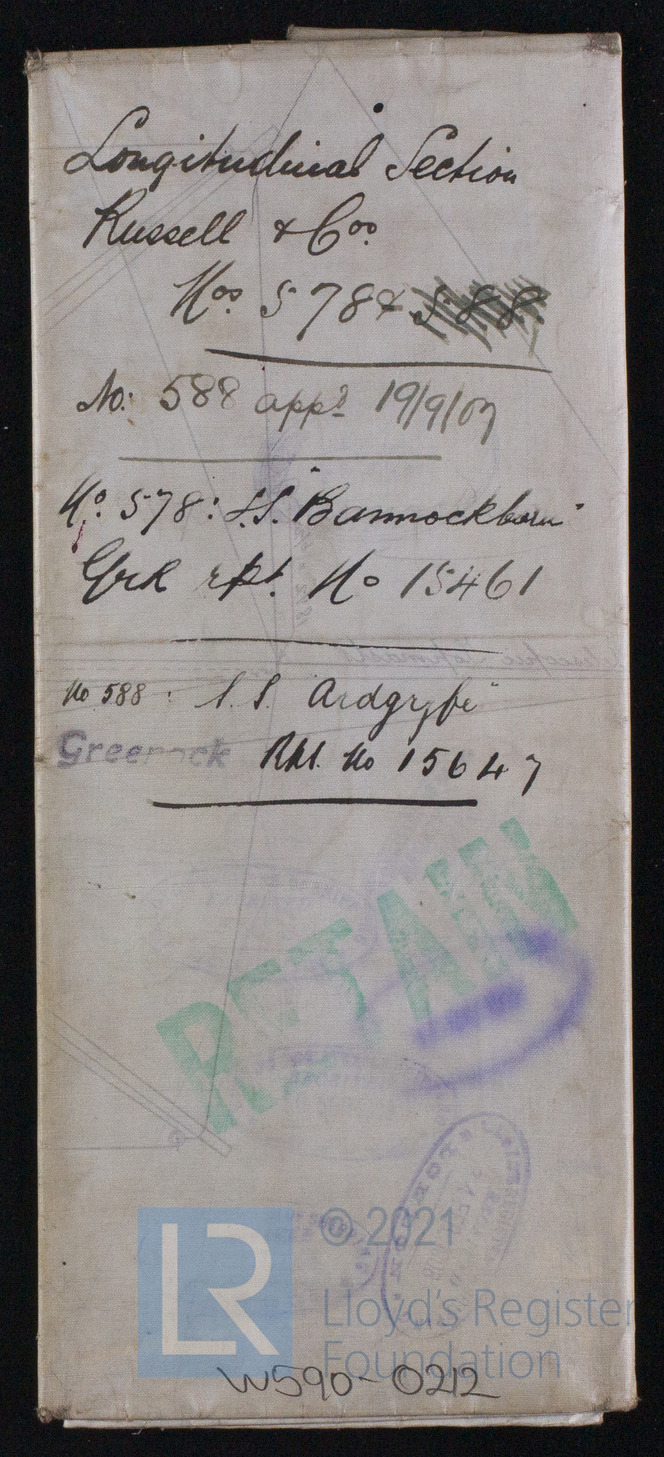 Longitudinal Section
Russell & Coos
Nos 578 & 588
No: 588 appd 19/9/07
No 578: S.S. "Bannockburn"
Grk rpt. No 15461
No 588: S.S. Ardgryfe"
Greenock Rpt. No 15647
RETAIN
LR
© 2021
Lloyd's Register
Foundation
W590-0212